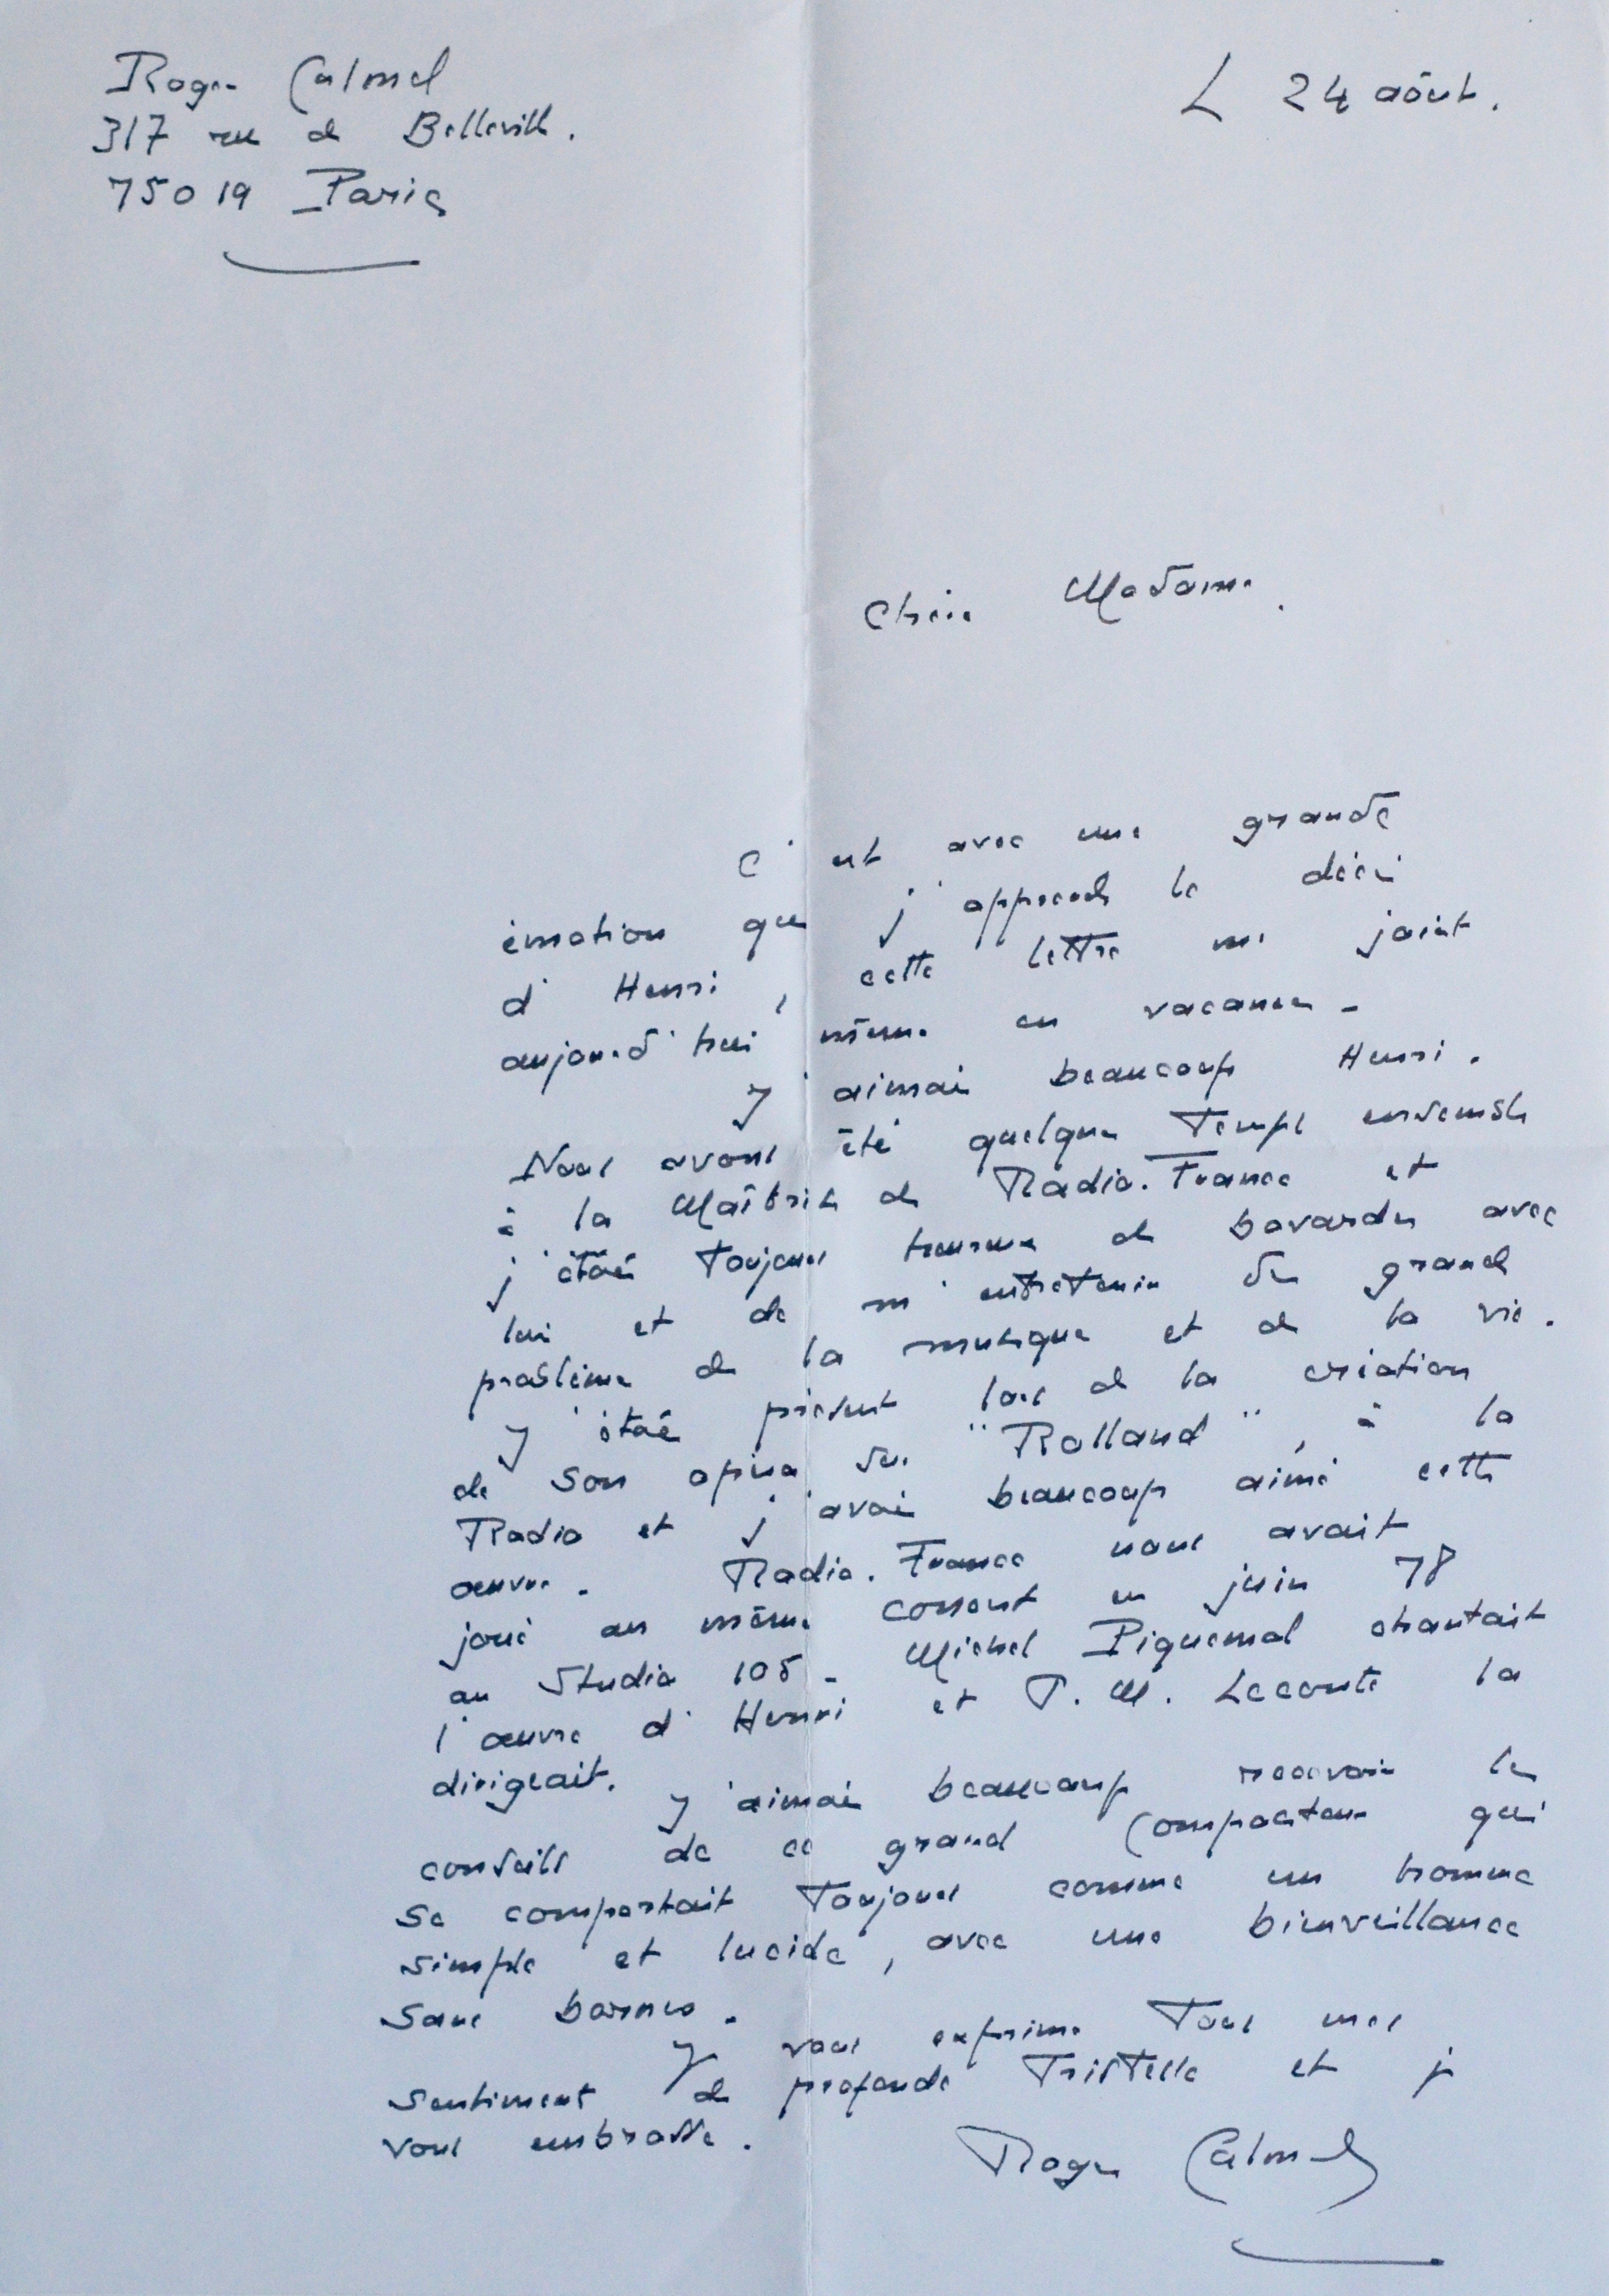 Roger Calmel
317 rue de Belleville.
75019 Paris
Le 24 août.
Chère Madame.
C'est avec une grande
émotion que j'apprends le décès
d'Henri, cette lettre me joint
aujourd'hui même en vacances -
J'aimais beaucoup Henri.
Nous avons été quelques temps ensemble
à la Maîtrise de Radio-France et
j'étais toujours heureux de bavarder avec
lui et de m'entretenir des grands
problèmes de la musique et de la vie.
J'étais présent lors de la création
de son opéra sur "Rolland", à la
Radio et j'avais beaucoup aimé cette
œuvre. Radio-France nous avait
joué au même concert en juin 78
au Studio 105 - Michel Piquemal chantait
l'œuvre d'Henri et P. M. Leconte la
dirigeait.
J'aimais beaucoup recevoir les
conseils de ce grand Compositeur qui
se comportait toujours comme un homme
simple et lucide, avec une bienveillance
sans bornes.
Je vous exprime tous mes
sentiments de profonde tristesse et je
vous embrasse.
Roger Calmel